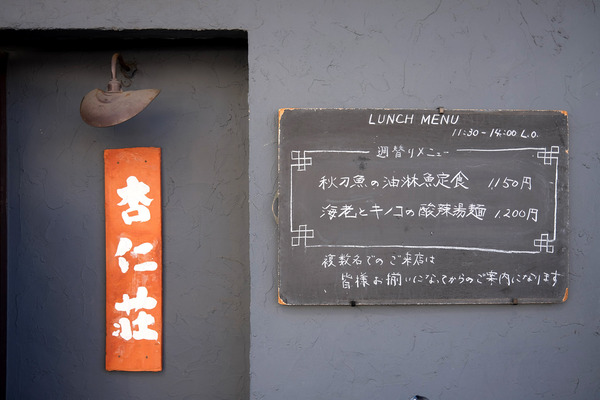 杏仁荘
LUNCH MENU
11:30-14:00 L.O.
週替りメニュー
秋刀魚の油淋魚定食 1150円
海老とキノコの酸辣湯麺 1,200円
複数名でのご来店は
皆様お揃いになってからのご案内になります